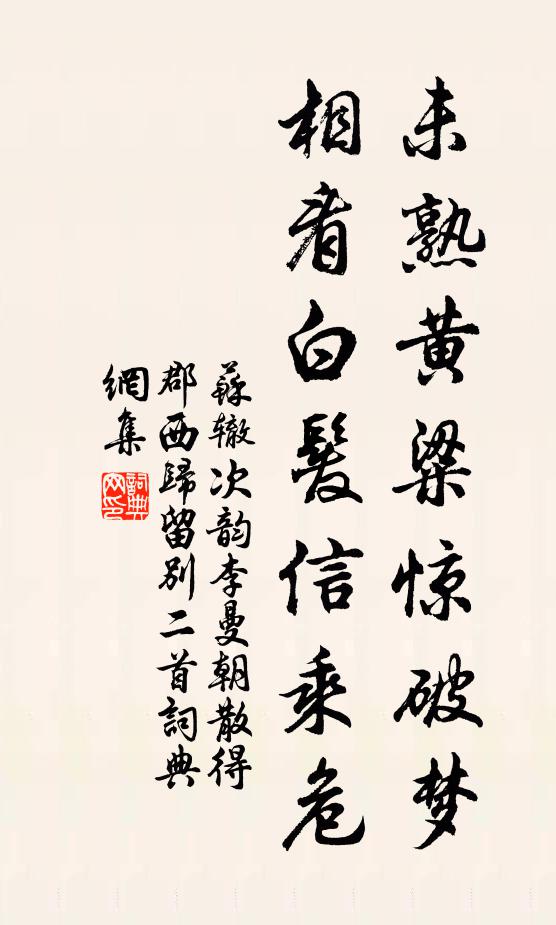 未熟黄粱惊破梦
相看白髮信乘危
蘇辙次韵李曼朝散得
郡西歸留别二首詞典
網集
詞典
网印